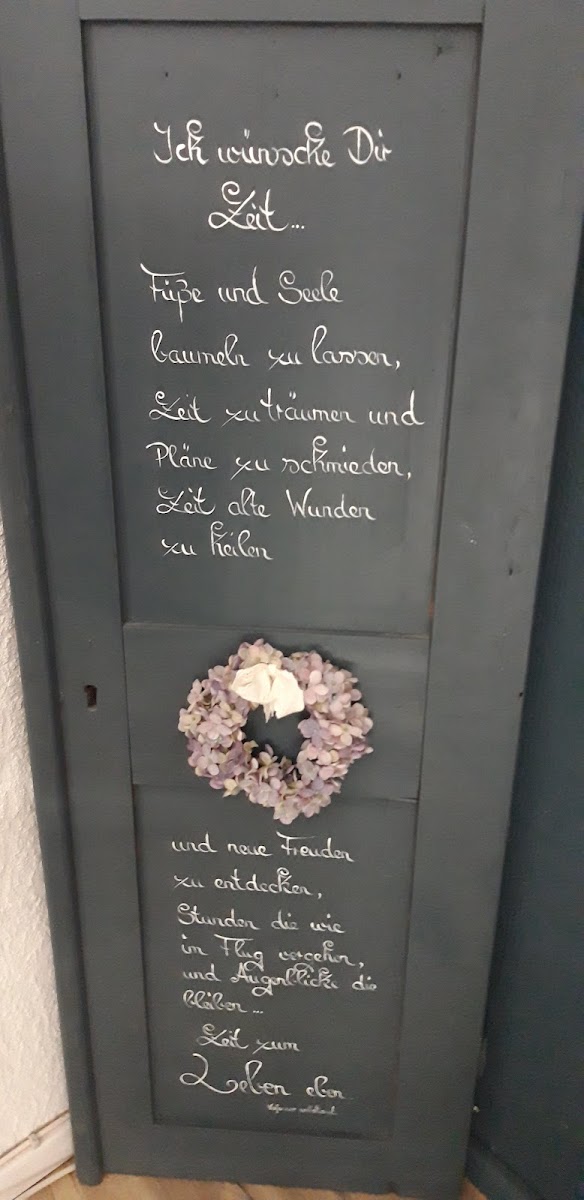 Ich wünsche Dir
Zeit...
Füße und Seele
baumeln zu lassen,
Zeit zu träumen und
Pläne zu schmieden,
Zeit alte Wunden
zu heilen
und neue Freuden
zu entdecken,
Stunden die wie
im Flug vergehen,
und Augenblicke die
bleiben...
Zeit zum
Leben eben